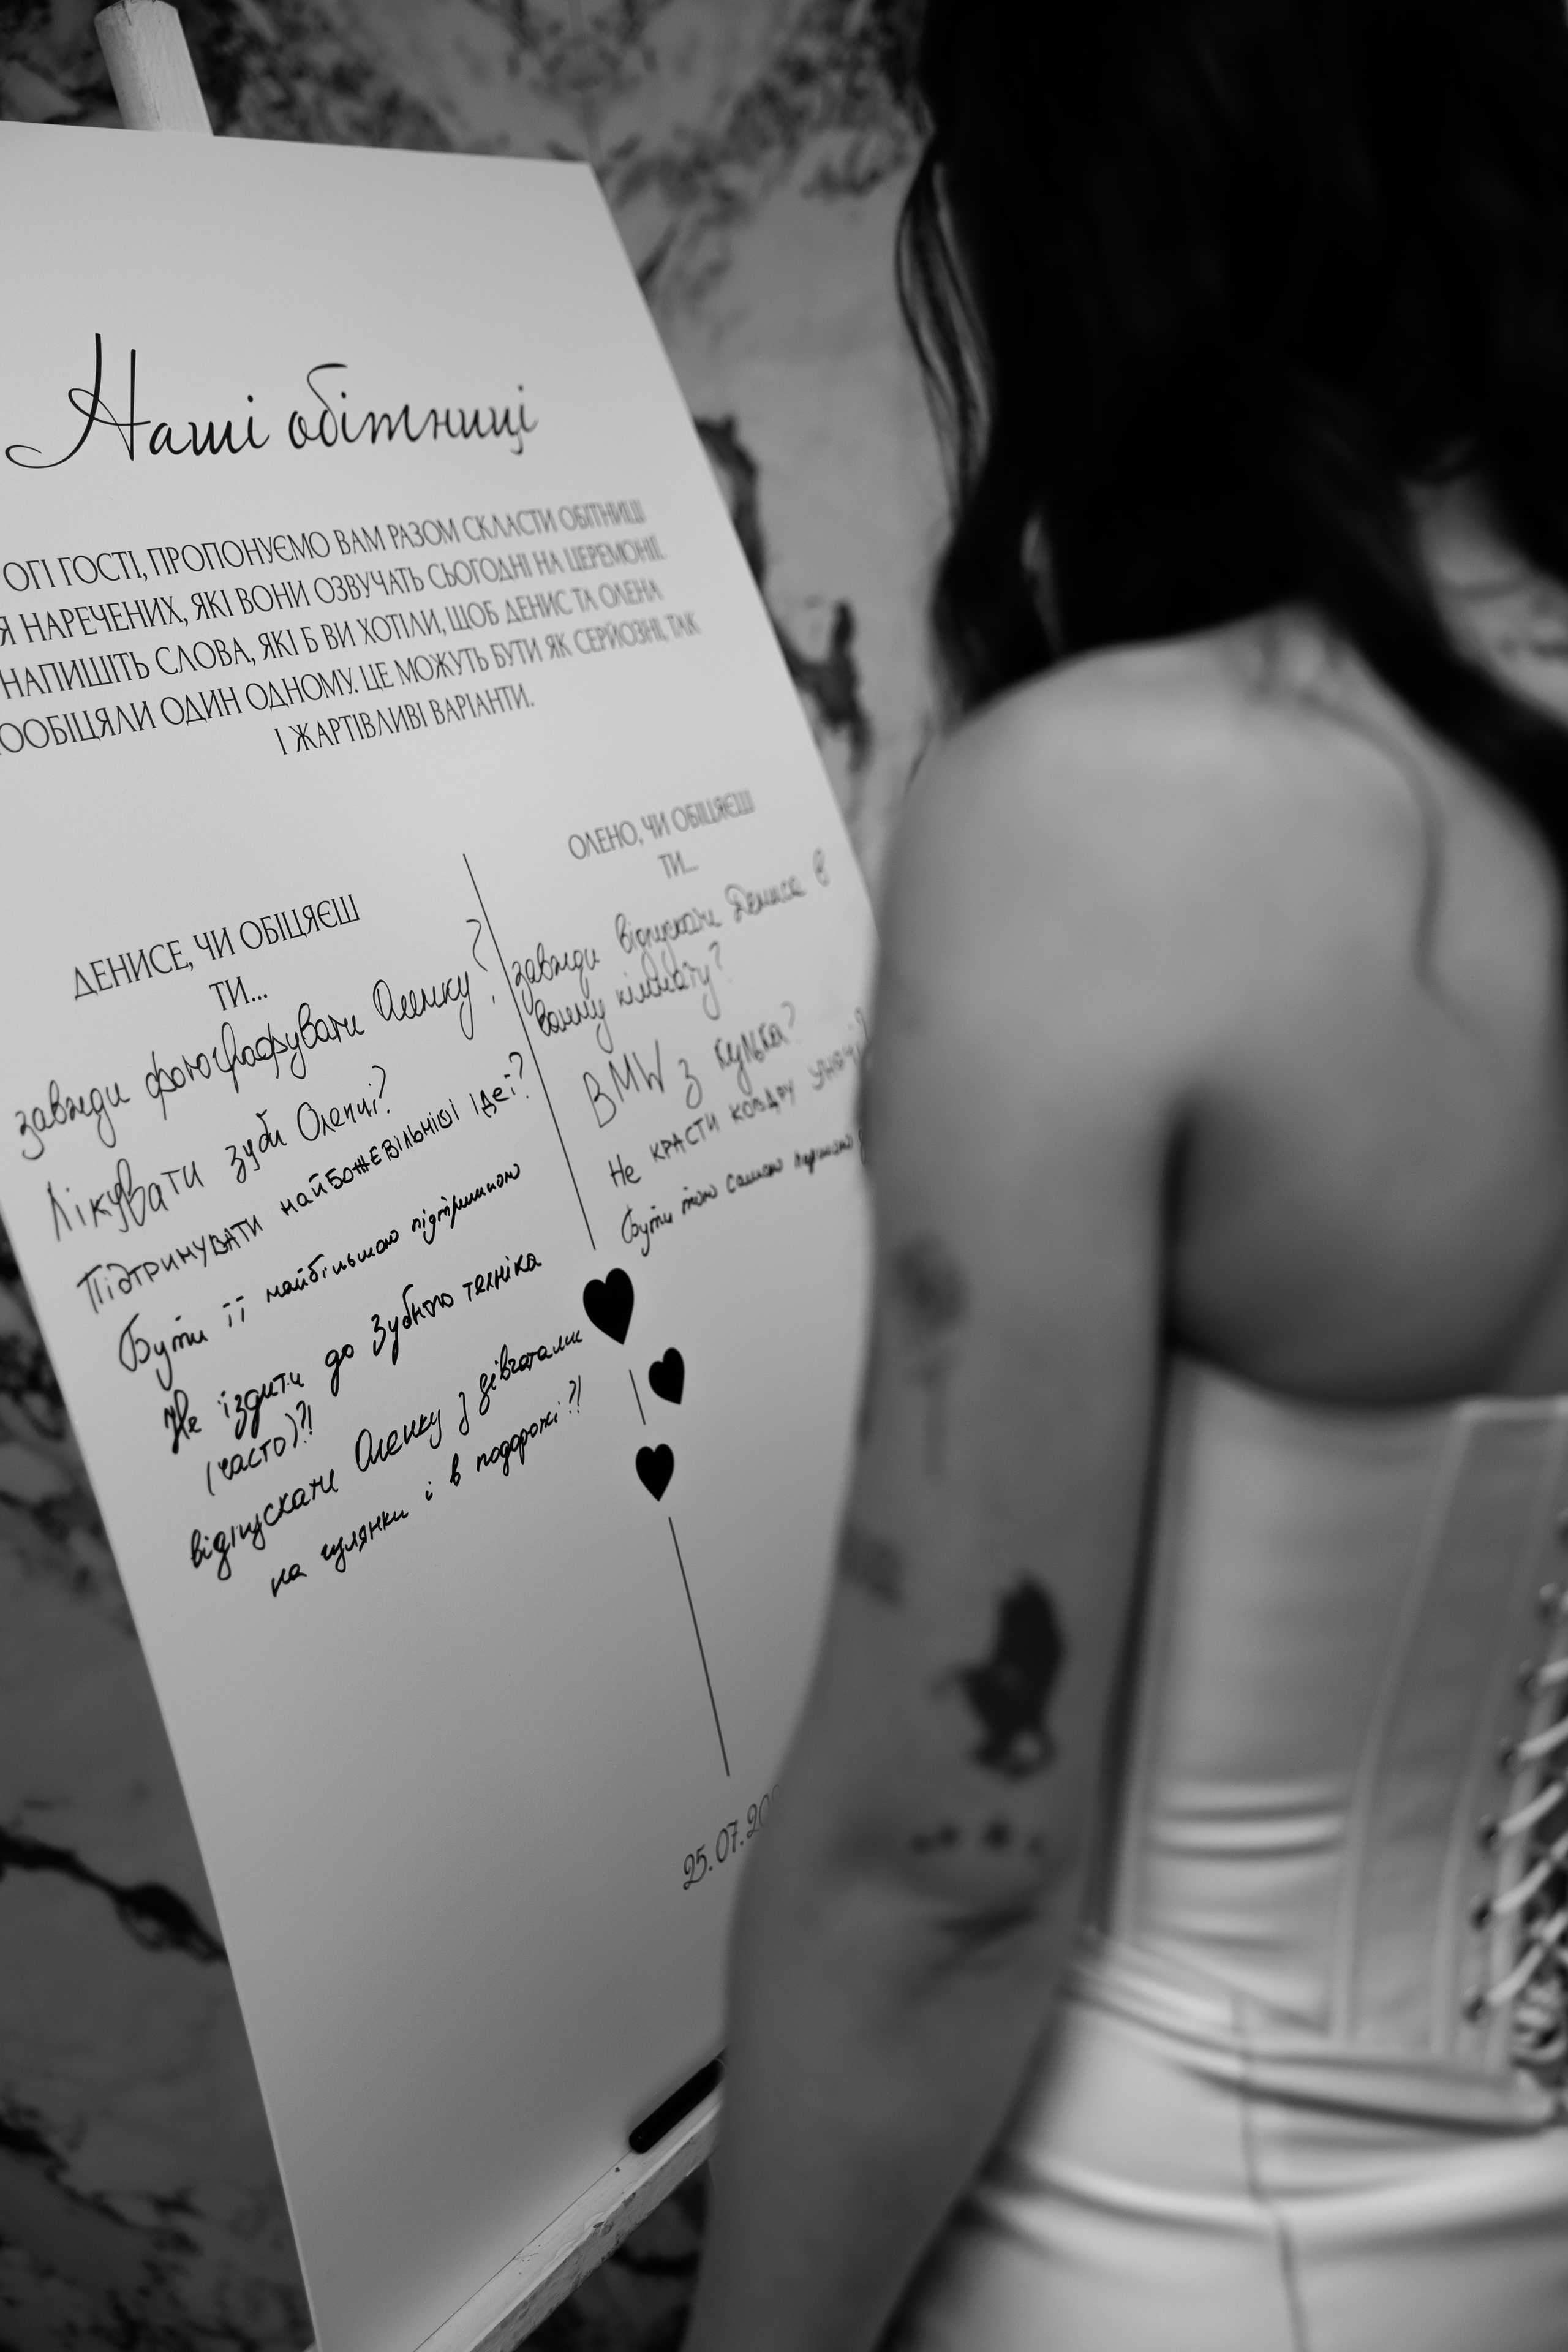 Наші обітниці
ОГІ ГОСТІ, ПРОПОНУЄМО ВАМ РАЗОМ СКЛАСТИ ОБІТНИЦІ
Я НАРЕЧЕНИХ, ЯКІ ВОНИ ОЗВУЧАТЬ СЬОГОДНІ НА ЦЕРЕМОНІЇ.
НАПИШІТЬ СЛОВА, ЯКІ Б ВИ ХОТІЛИ, ЩОБ ДЕНИС ТА ОЛЕНА
ООБІЦЯЛИ ОДИН ОДНОМУ. ЦЕ МОЖУТЬ БУТИ ЯК СЕРЙОЗНІ, ТАК
І ЖАРТІВЛИВІ ВАРІАНТИ.
ДЕНИСЕ, ЧИ ОБІЦЯЄШ
ТИ...
завжди фотографувати Оленку?
Лікувати зуби Оленці?
Підтримувати найбожевільніші ідеї?
Бути її найбільшою підтримкою
Не їздити до зубного техніка
(часто)?!
відпускати Оленку з дівчатами
на гулянки і в подорожі?!
ОЛЕНО, ЧИ ОБІЦЯЄШ
ТИ...
завжди відпускати Дениса в
ванну кімнату?
BMW з кулька?
Не красти ковдру уночі
Бути тою самою
25.07.20